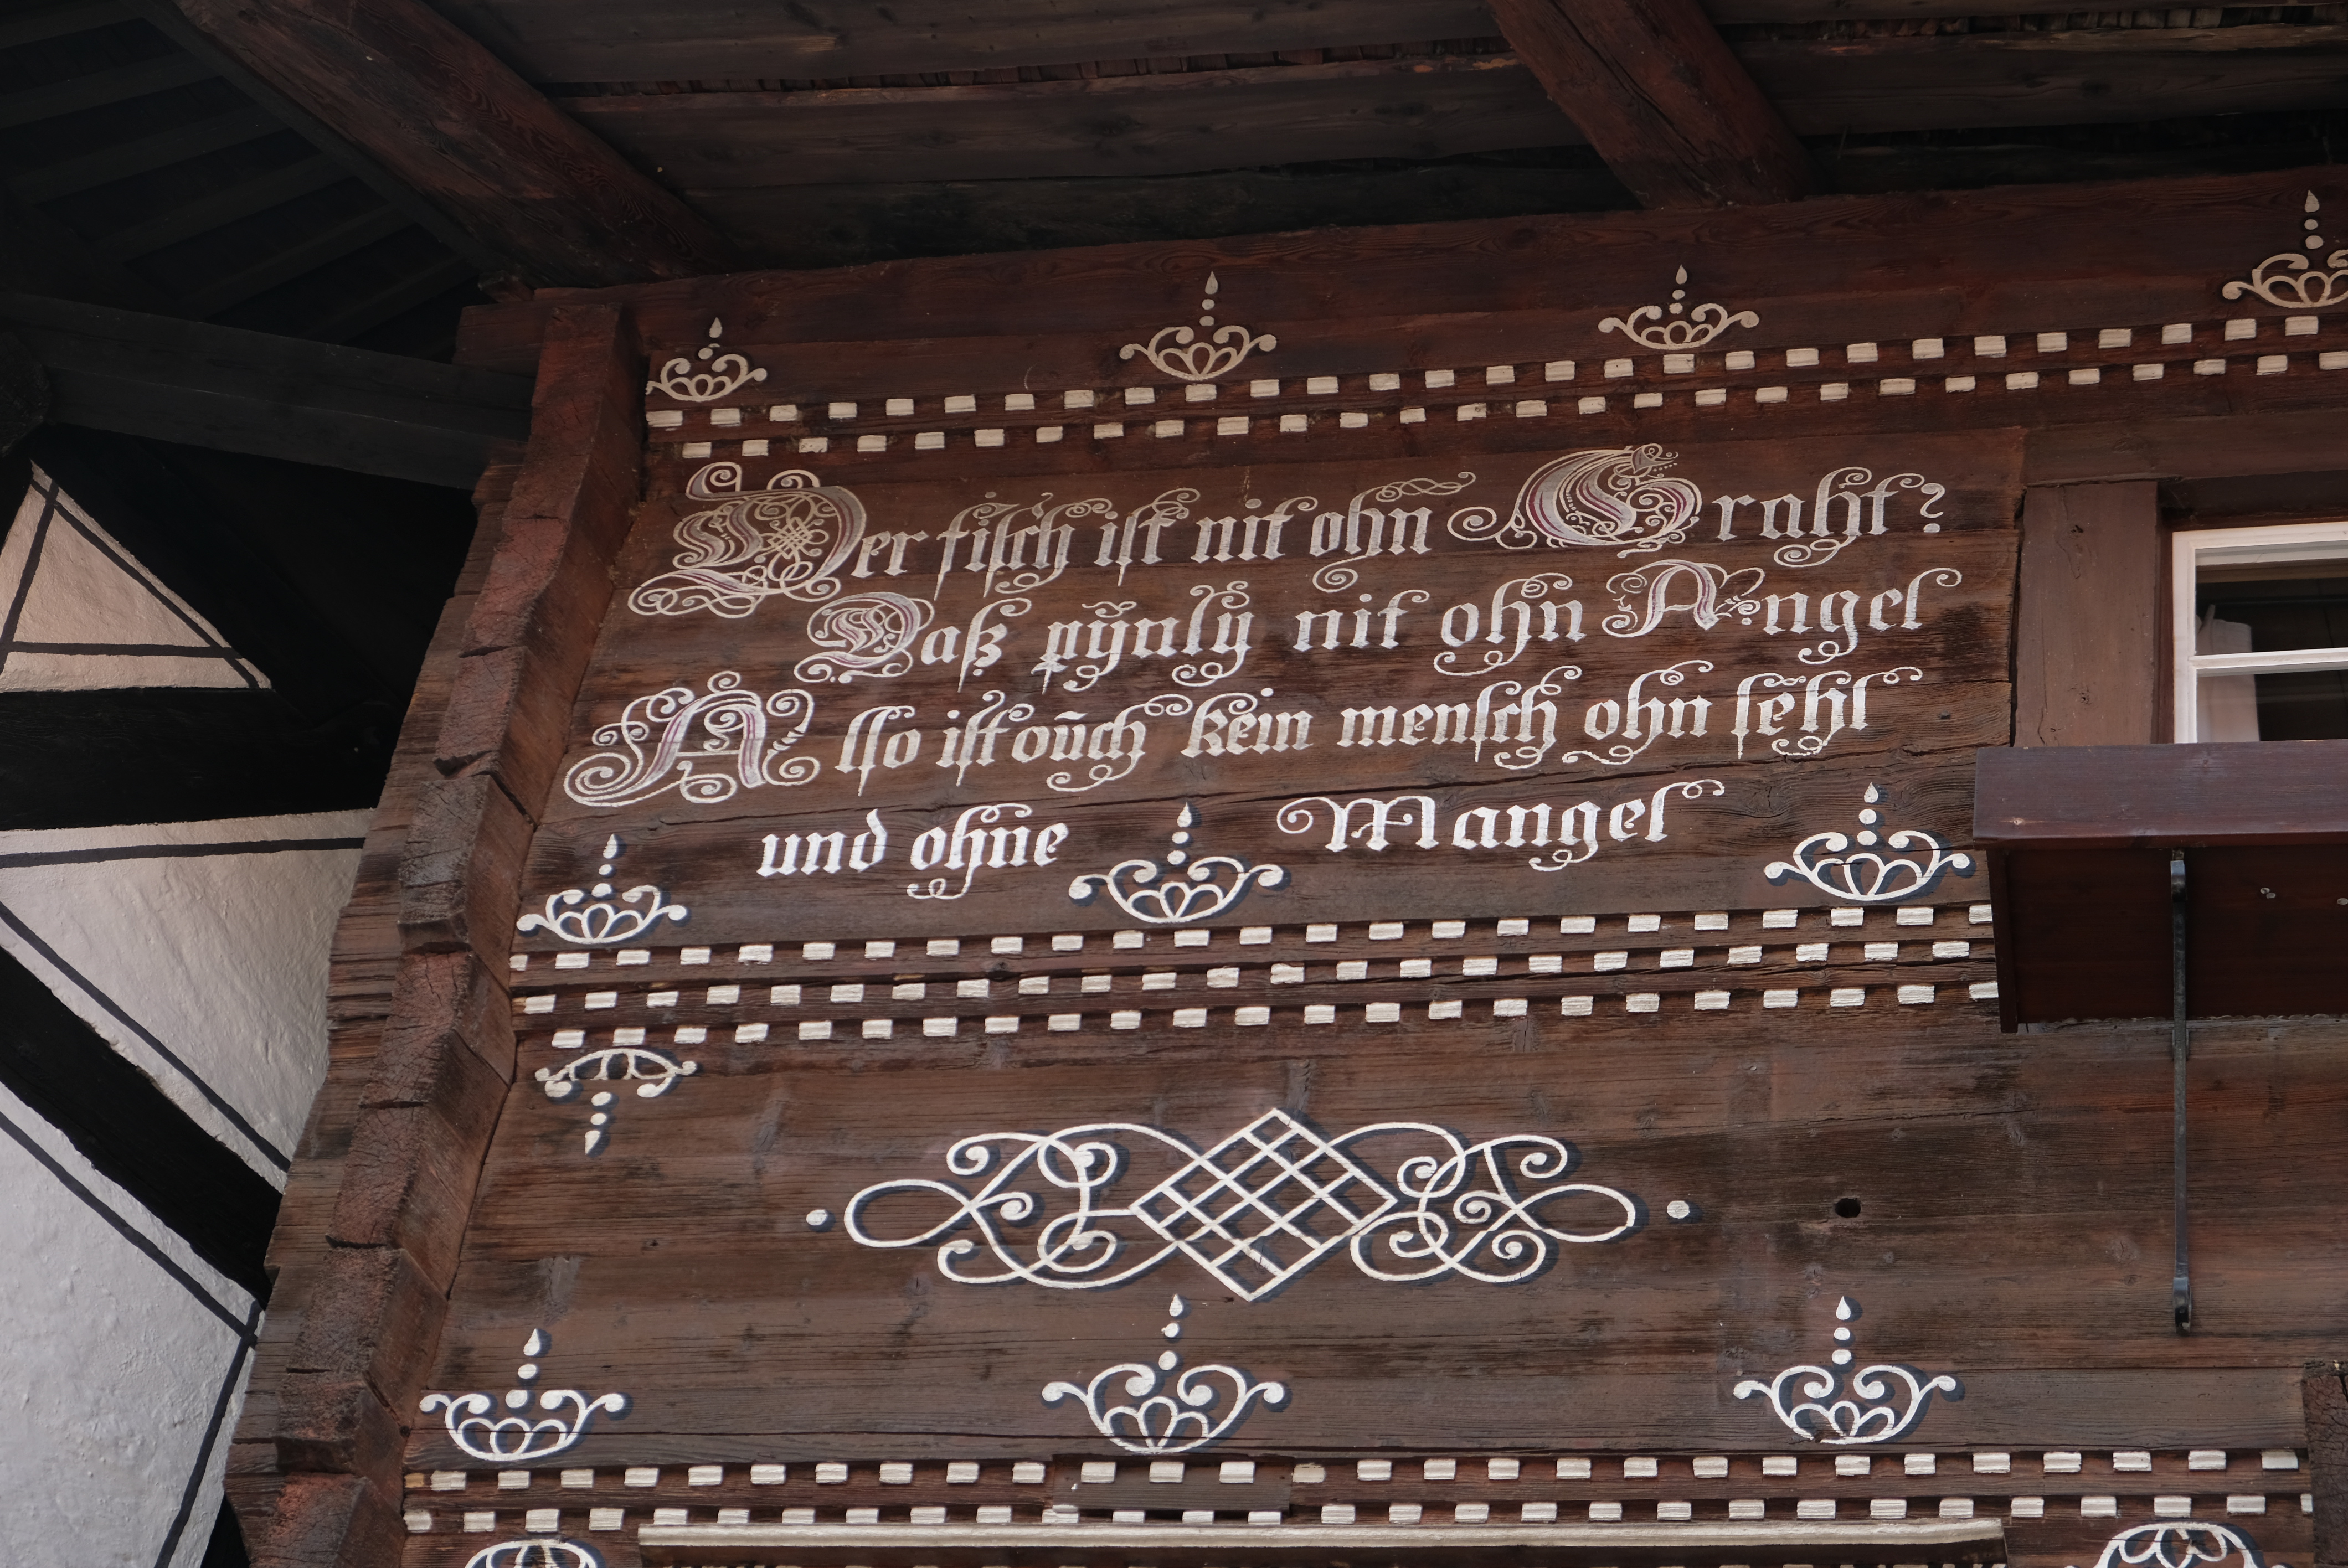 Der fisch ist nit ohn Graht?
Daß pÿnlÿ nit ohn Angel
Allso ist oũch kein mensch ohn fẽhl
und ohne Mangel